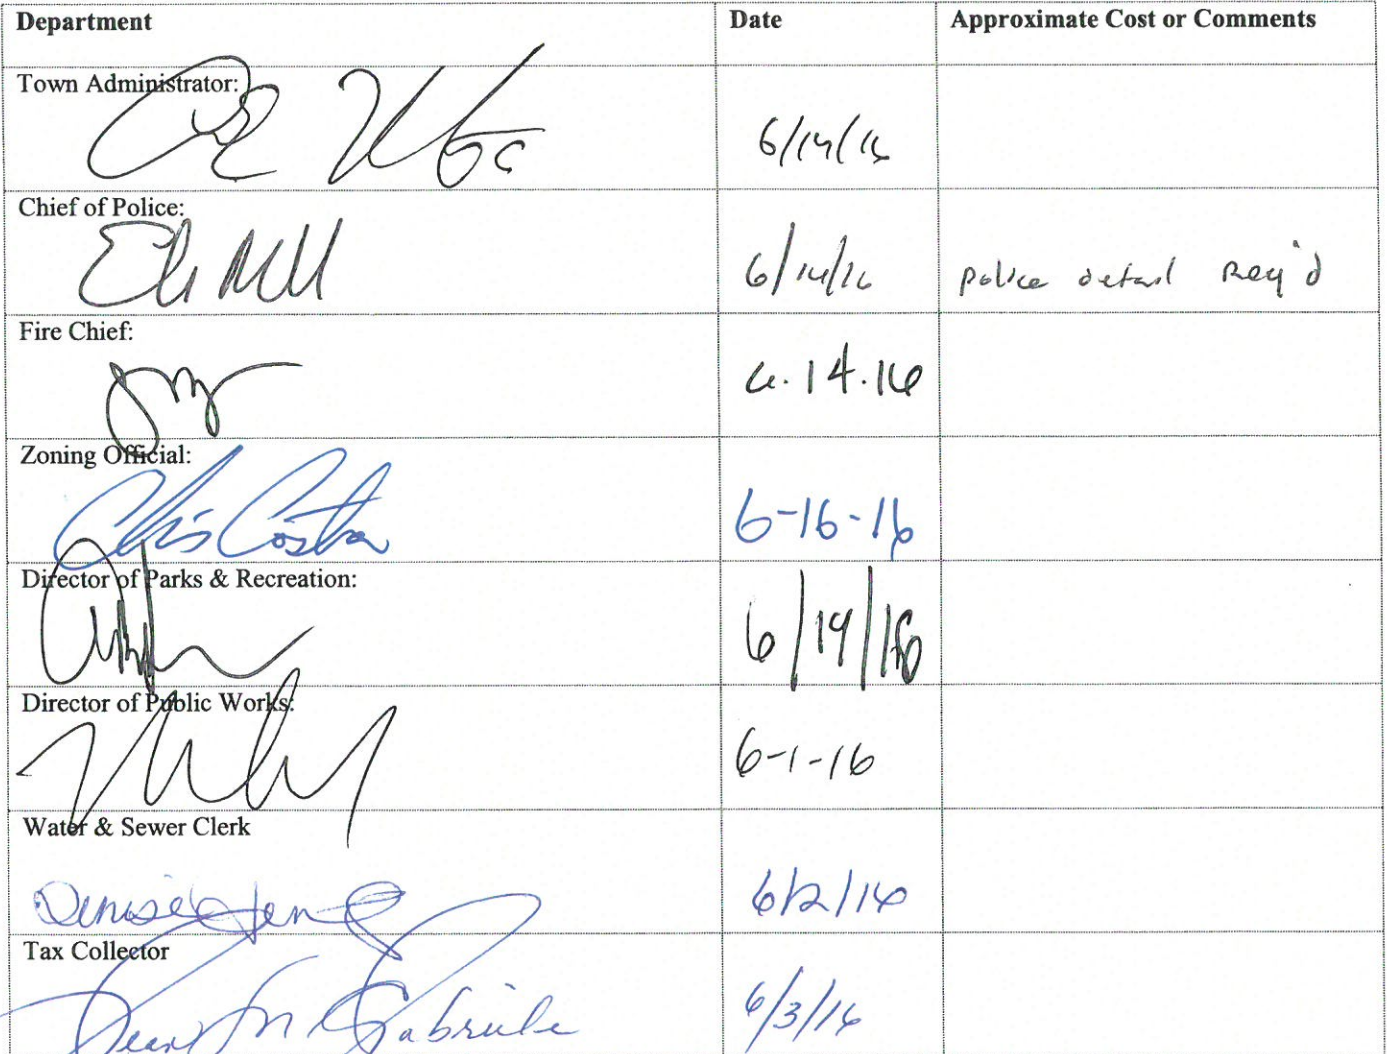 Department Date Approximate Cost or Comments
Town Administrator:
6/14/16
Chief of Police:
6/14/16 Police detail Req'd
Fire Chief:
6.14.16
Zoning Official:
Chris Costa 6-16-16
Director of Parks & Recreation:
6/14/16
Director of Public Works:
6-1-16
Water & Sewer Clerk
Denise 6/2/16
Tax Collector
Gabriele 6/3/16